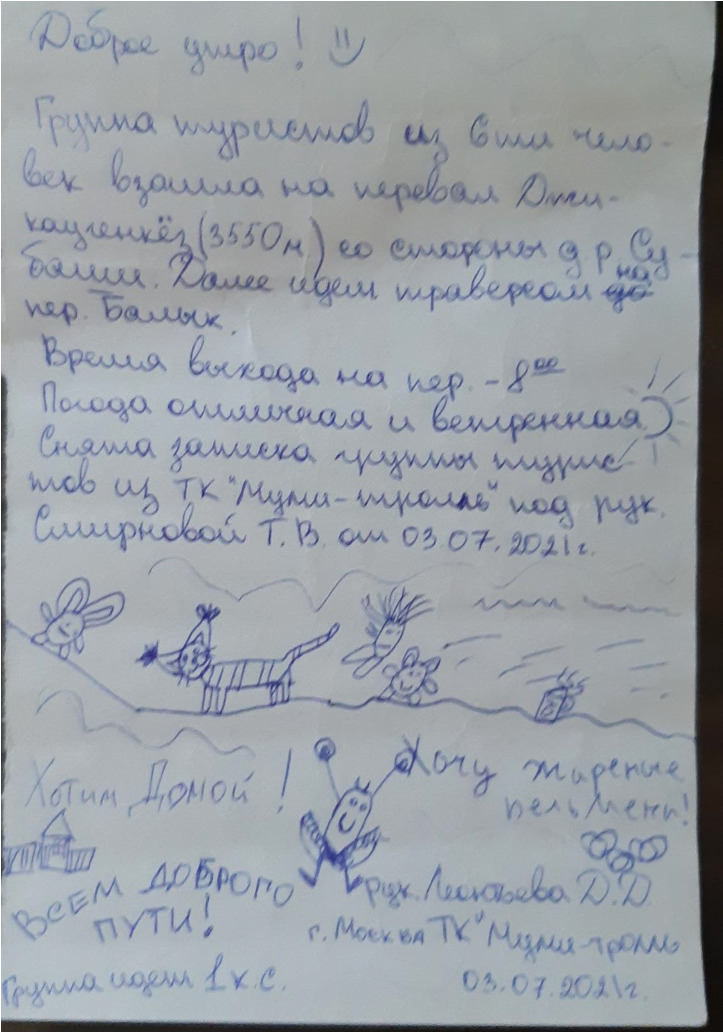 Доброе утро!
Группа туристов из 6ти чело-
век взошла на перевал Джи-
каугенкёз (3550м) со стороны д.р. Су-
баши. Далее идем траверсом на
пер. Балык.
Время выхода на пер. - 8⁰⁰
Погода отличная и ветренная
Снята записка группы турис-
тов из ТК "Муми-тролль" под рук.
Смирновой Т.В. от 03.07.2021г.
Хотим Домой!
Хочу жареные
пельмени!
ВСЕМ ДОБРОГО
ПУТИ!
рук. Леонтьева Д.Д.
г. Москва ТК "Муми-тролль
Группа идет 1 к.с.
03.07.2021г.